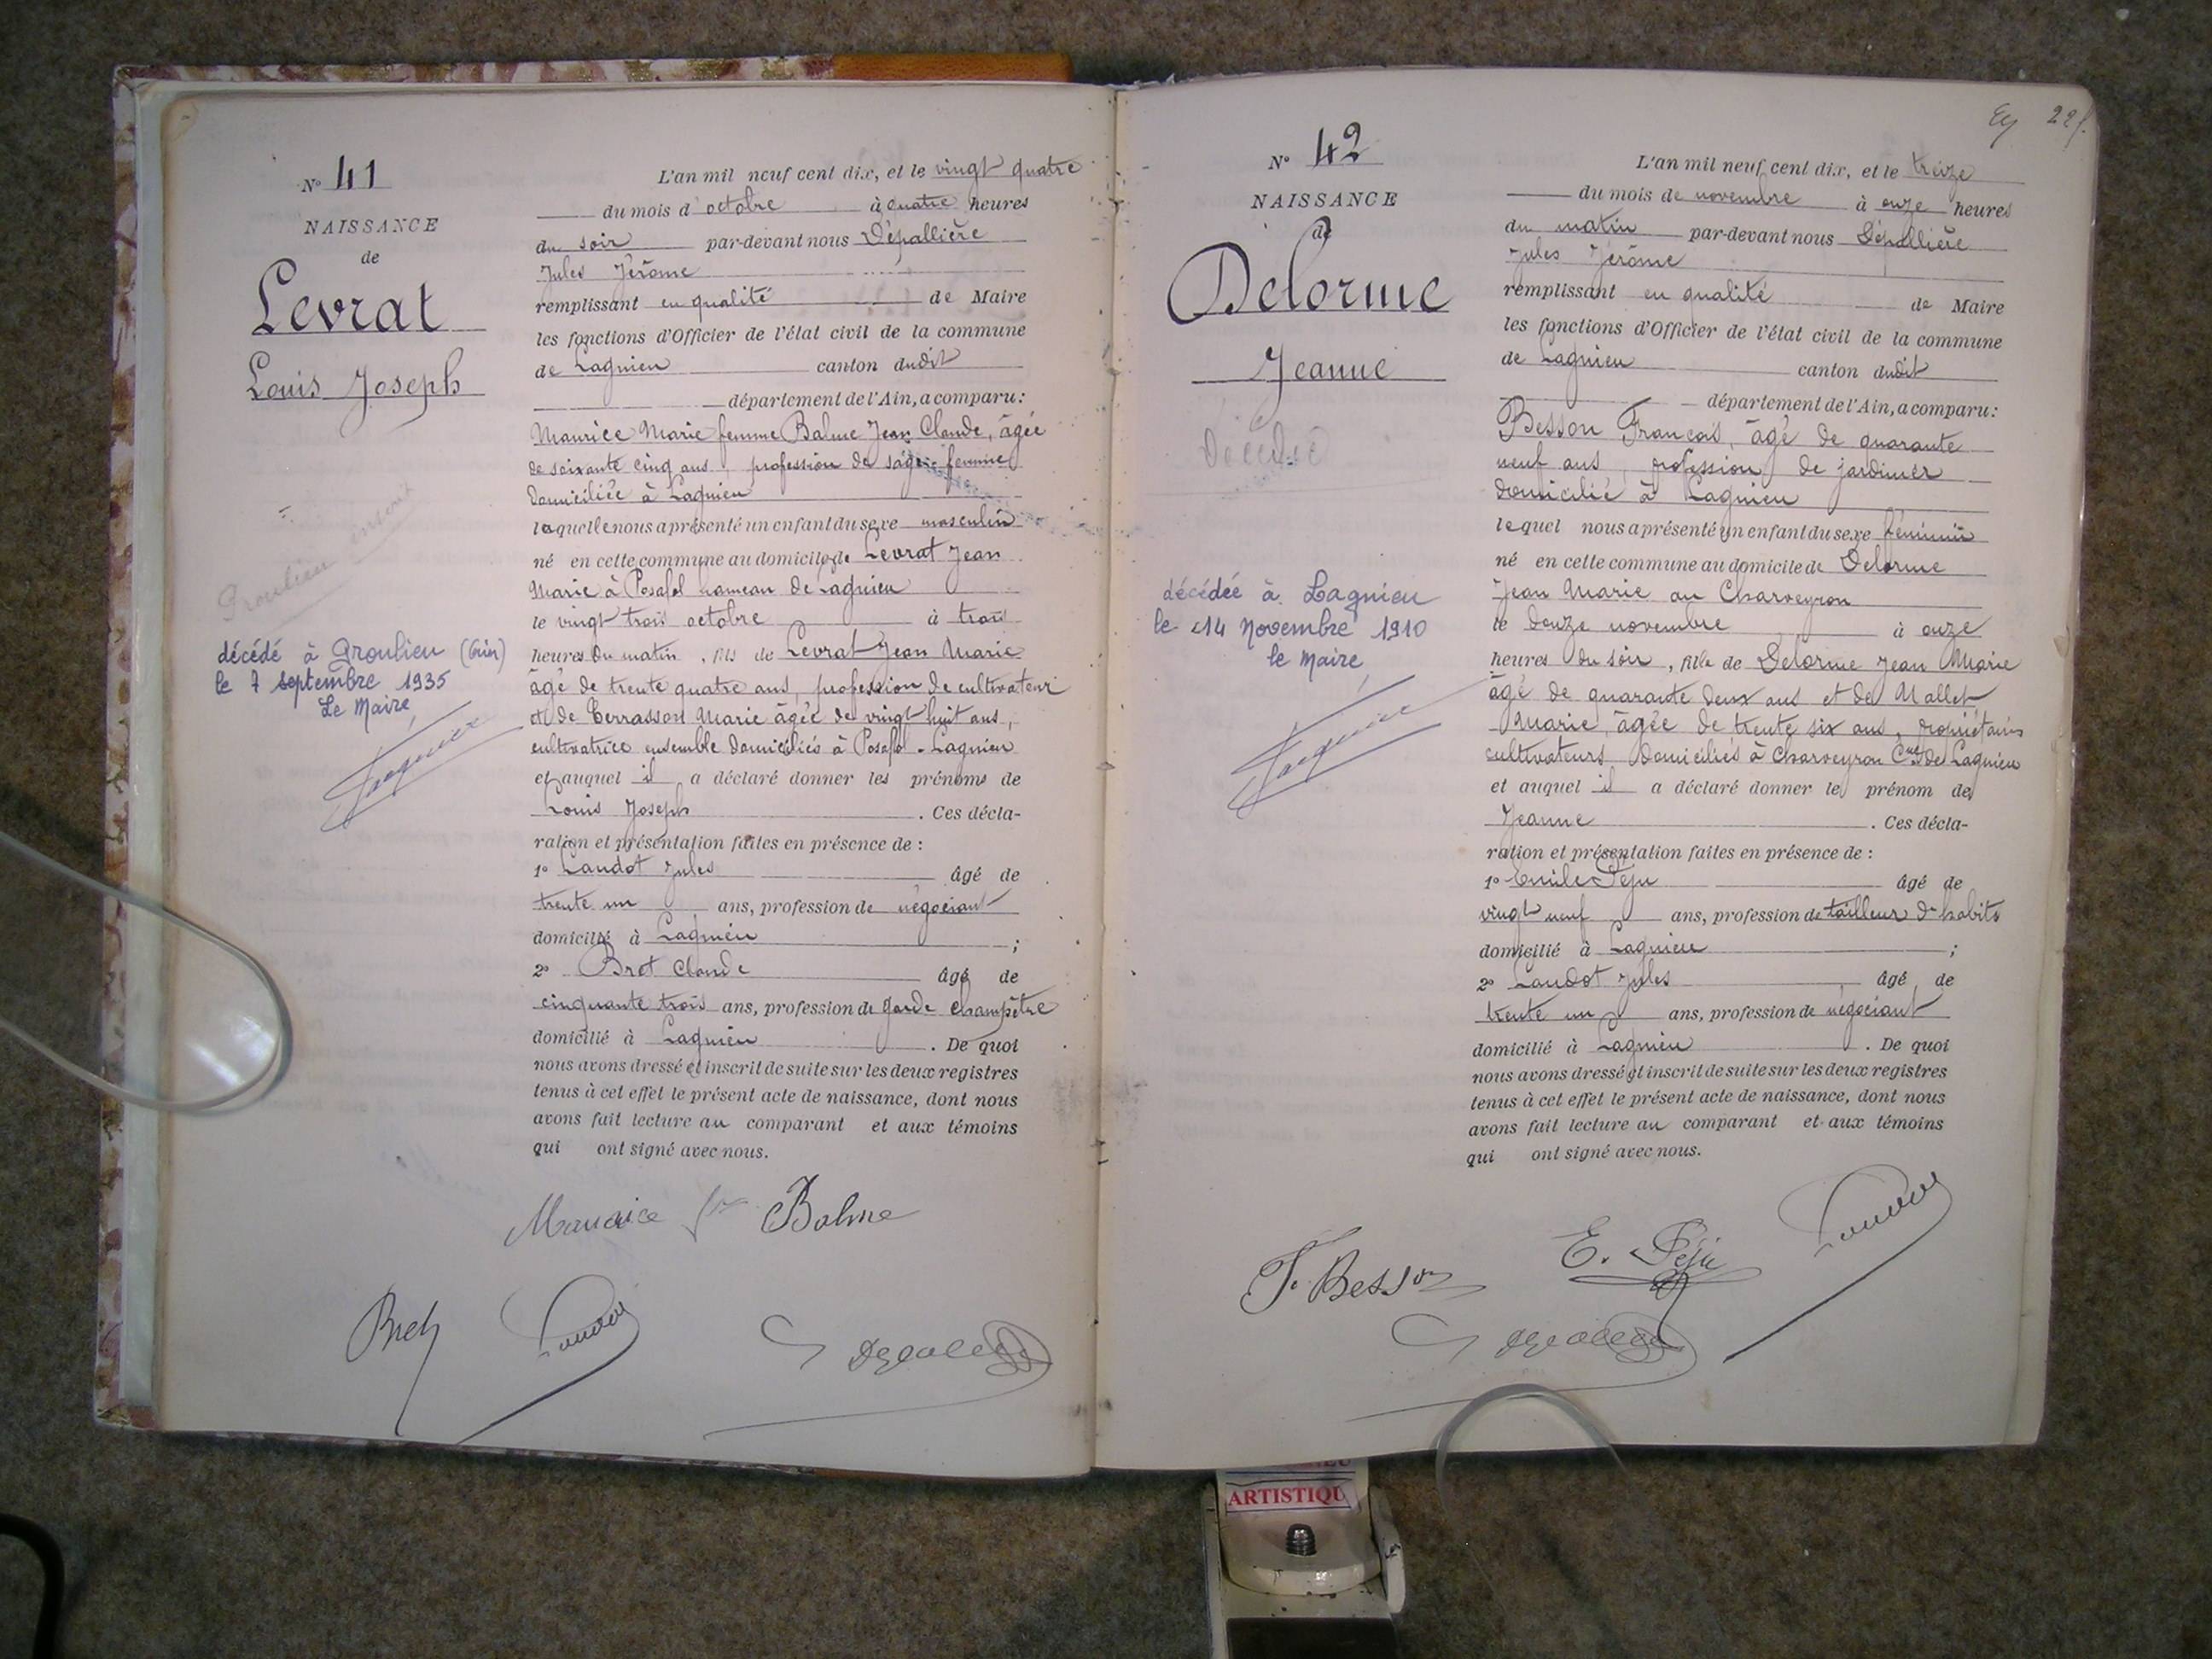 N° 41
NAISSANCE
de
Levrat
Louis Joseph
décédé à Groulieu (Ain)
le 7 septembre 1935
Le Maire
L'an mil neuf cent dix, et le vingt quatre
du mois d'octobre à quatre heures
du soir par-devant nous Dépallière
Jules Jérôme
remplissant en qualité de Maire
les fonctions d'Officier de l'état civil de la commune
de Lagnieu canton dudit
département de l'Ain, a comparu :
Maurice Marie femme Balme Jean Claude, âgée
de soixante cinq ans, profession de sage-femme
domiciliée à Lagnieu
laquelle nous a présenté un enfant du sexe masculin
né en cette commune au domicile de Levrat Jean
Marie à Posafol hameau de Lagnieu
le vingt trois octobre à trois
heures du matin, fils de Levrat Jean Marie
âgé de trente quatre ans, profession de cultivateur
et de Terrasson Marie âgée de vingt huit ans,
cultivatrice ensemble domiciliés à Posafol - Lagnieu
et auquel il a déclaré donner les prénoms de
Louis Joseph . Ces décla-
ration et présentation faites en présence de :
1° Landot Jules âgé de
trente un ans, profession de négociant
domicilié à Lagnieu ;
2° Bret Claude âgé de
cinquante trois ans, profession de garde champêtre
domicilié à Lagnieu . De quoi
nous avons dressé et inscrit de suite sur les deux registres
tenus à cet effet le présent acte de naissance, dont nous
avons fait lecture au comparant et aux témoins
qui ont signé avec nous.
Maurice fe Balme
Bret
22
N° 42
NAISSANCE
de
Delorme
Jeanne
Décédée
décédée à Lagnieu
le 14 Novembre 1910
le Maire
L'an mil neuf cent dix, et le treize
du mois de novembre à onze heures
du matin par-devant nous Dépallière
Jules Jérôme
remplissant en qualité de Maire
les fonctions d'Officier de l'état civil de la commune
de Lagnieu canton dudit
département de l'Ain, a comparu :
Besson François, âgé de quarante
neuf ans, profession de jardinier
domicilié à Lagnieu
lequel nous a présenté un enfant du sexe féminin
né en cette commune au domicile de Delorme
Jean Marie au Charveyron
le douze novembre à onze
heures du soir, fille de Delorme Jean Marie
âgé de quarante deux ans et de Mallet
Marie, âgée de trente six ans, propriétaires
cultivateurs domiciliés à Charveyron Cne de Lagnieu
et auquel il a déclaré donner le prénom de
Jeanne . Ces décla-
ration et présentation faites en présence de :
1° Emile Péju âgé de
vingt neuf ans, profession de tailleur d'habits
domicilié à Lagnieu ;
2° Landot Jules âgé de
trente un ans, profession de négociant
domicilié à Lagnieu . De quoi
nous avons dressé et inscrit de suite sur les deux registres
tenus à cet effet le présent acte de naissance, dont nous
avons fait lecture au comparant et aux témoins
qui ont signé avec nous.
F. Besson
E. Péju
ARTISTIQU